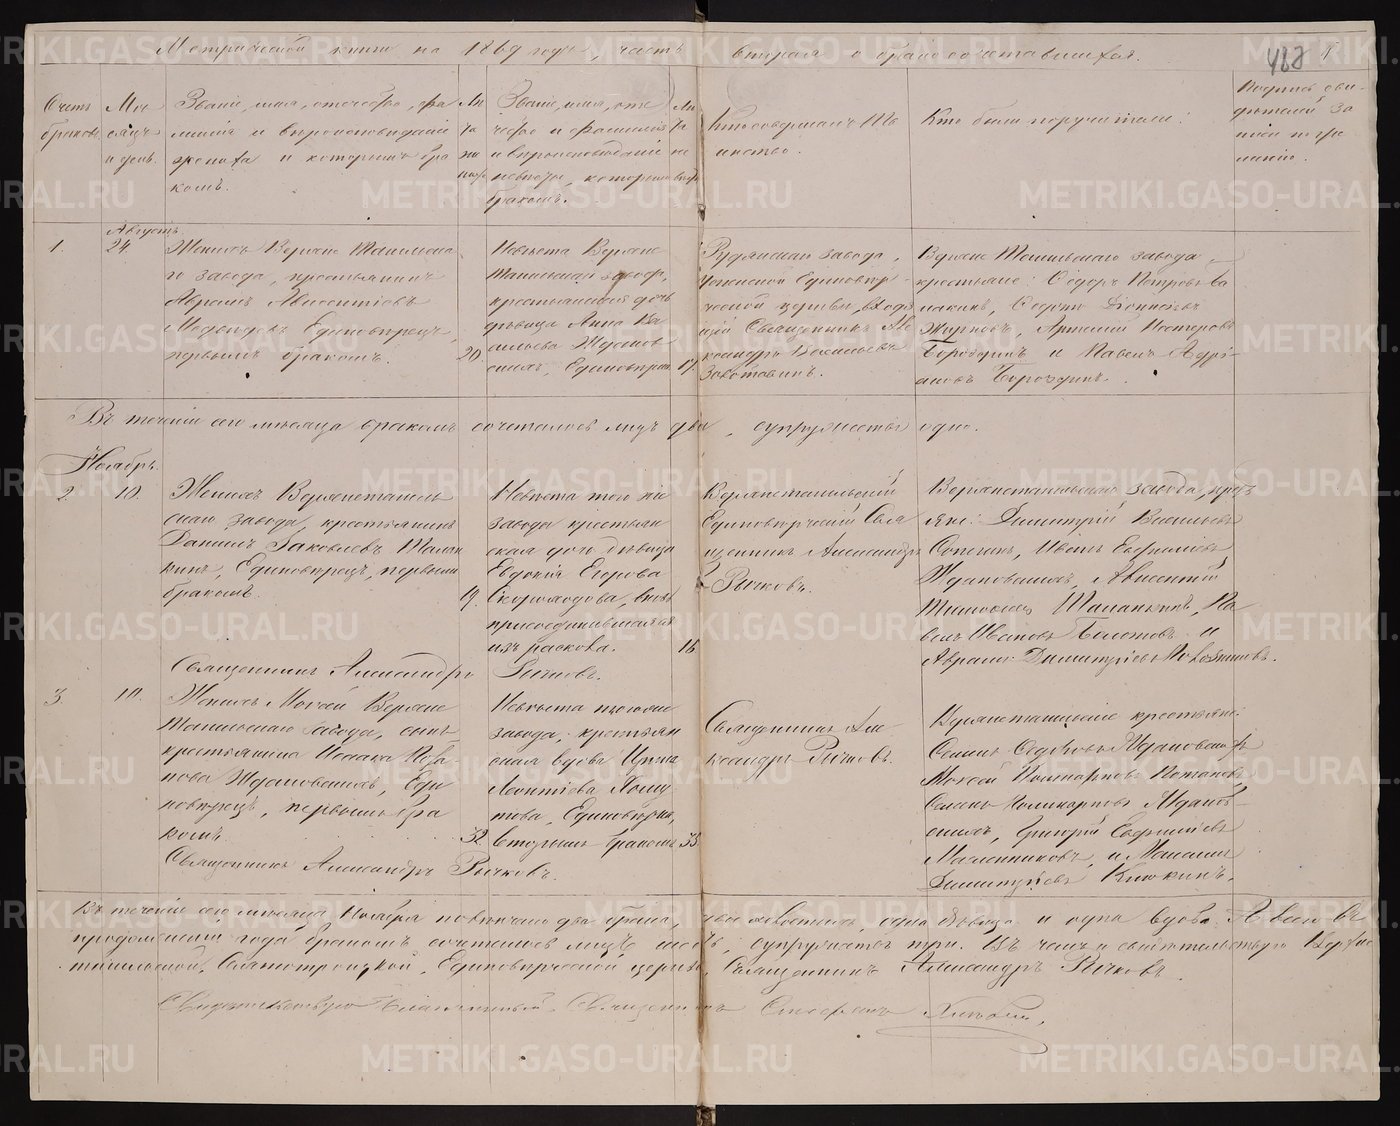 Метрической книги на 1869 годъ, часть вторая о бракосочетавшихся.
488
Счетъ браковъ.
Месяцъ и день.
Званіе, имя, отчество, фа
милія и вероисповеданіе
жениха и которымъ бра
комъ.
Лета жениха
Званіе, имя, отче
чество и фамилія
и вероисповеданіе
невесты, которымъ
бракомъ.
Лета невесты
Кто совершалъ Та
инство.
Кто были поручители.
Подпись сви
детелей за
писи по же
ланію.
1.
Августъ
24
Женихъ Верхне Тагильска
го завода, крестьянинъ
Аврамъ Авксентіевъ
Медведевъ Единоверецъ,
первымъ бракомъ.
20.
Невеста Верхне
Тагильскаго завода,
крестьянская дочь
девица Анна Ва
сильева Жданов
скихъ, Единоверч.
17.
Рудянскаго завода,
Успенской Единовер
ческой церкви,
Священникъ Але
ксандръ Васильевъ
Верхне Тагильскаго завода,
крестьяне: Сидоръ Петровъ
Федотъ Діонисіевъ
Артемій Нестеровъ
Бороздинъ и Павелъ Андрі
ановъ Бороздинъ.
Въ теченіи сего месяца бракомъ сочеталось лицъ два, супружество одно.
Ноябрь.
2.
10.
Женихъ Верхнетагиль
скаго завода, крестьянинъ
Даніилъ Яковлевъ Малань
кинъ, Единоверецъ, первымъ
бракомъ.
19.
Невеста того же
завода крестьян
ская дочь девица
Евдокія Егорова
Скороходова, вновь
присоединившаяся
изъ раскола.
16
Верхнетагильскій
Единоверческій Свя
щенникъ Александръ
Рычковъ.
Верхнетагильскаго завода, крест
яне: Димитрій Васильевъ
Иванъ Ефимовъ
Ждановскихъ, Авксентій
Маланьинъ, Па
велъ Ивановъ Болотовъ и
Аврамъ Димитріевъ
Священникъ Александръ Рычковъ.
3.
10.
Женихъ Мокей Верхне
Тагильскаго завода, сынъ
крестьянина Исаака Ива
нова Ждановскихъ, Еди
новерецъ, первымъ бра
комъ.
32
Невеста того же
завода, крестьян
ская вдова Ирина
Леонтіева
Единоверка,
вторымъ бракомъ
33.
Священникъ Але
ксандръ Рычковъ.
Верхнетагильскіе крестьяне:
Семенъ Сидоровъ Ждановскихъ
Мокей Поликарповъ Потаповъ,
Семенъ Поликарповъ Жданов
скихъ, Григорій Евфиміевъ
Масленниковъ, и
Димитріевъ Клюкинъ.
Священникъ Александръ Рычковъ.
Въ теченіи сего месяца Ноября повенчано два брака, двое холостыхъ, одна девица и одна вдова. А всехъ въ
продолженіи года бракомъ сочеталось лицъ шесть, супружествъ три. Въ чемъ и свидетельствую Верхне
тагильской, Златотроицкой, Единоверческой церкви, Священникъ Александръ Рычковъ.
Свидетельствую Благочинный, Священникъ Стефанъ